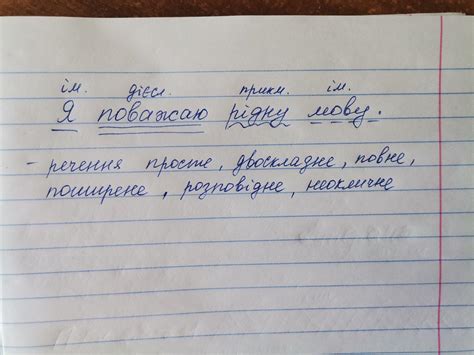 ім. дієсл. прикм. ім.
Я поважаю рідну мову.
- речення просте, двоскладне, повне,
поширене, розповідне, неокличне